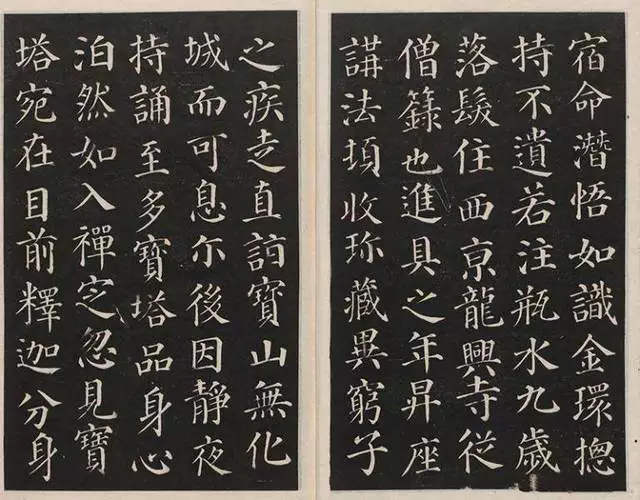 宿命潛悟如識金環揔
持不遺若注瓶水九歲
落髮住西京龍興寺從
僧籙也進具之年昇座
講法頓收珍藏異窮子
之疾走直詣寶山無化
城而可息尒後因靜夜
持誦至多寶塔品身心
泊然如入禪定忽見寶
塔宛在目前釋迦分身